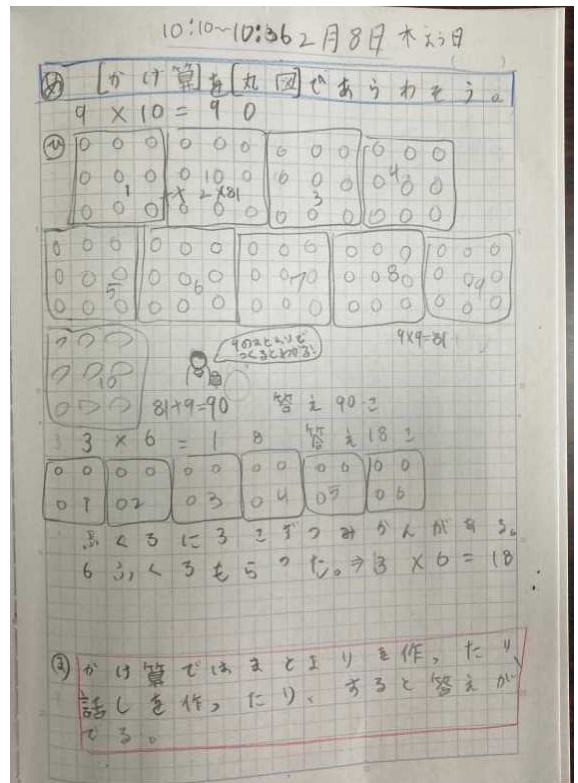 10:10~10:36 2月8日 木よう日
( )
め [かけ算]を[丸図]であらわそう。
9×10=90
ひ
1 ×2×81 3 4
5 6 7 8 9
9×9=81
9のまとまりで
つくるとわかる!
10
81+9=90 答え90こ
3×6=18 答え18こ
1 2 3 4 5 6
ふくろに3こずつみかんがある。
6ふくろもらった。⇒3×6=18
ま かけ算ではまとまりを作ったり、
話しを作ったり、すると答えが
でる。